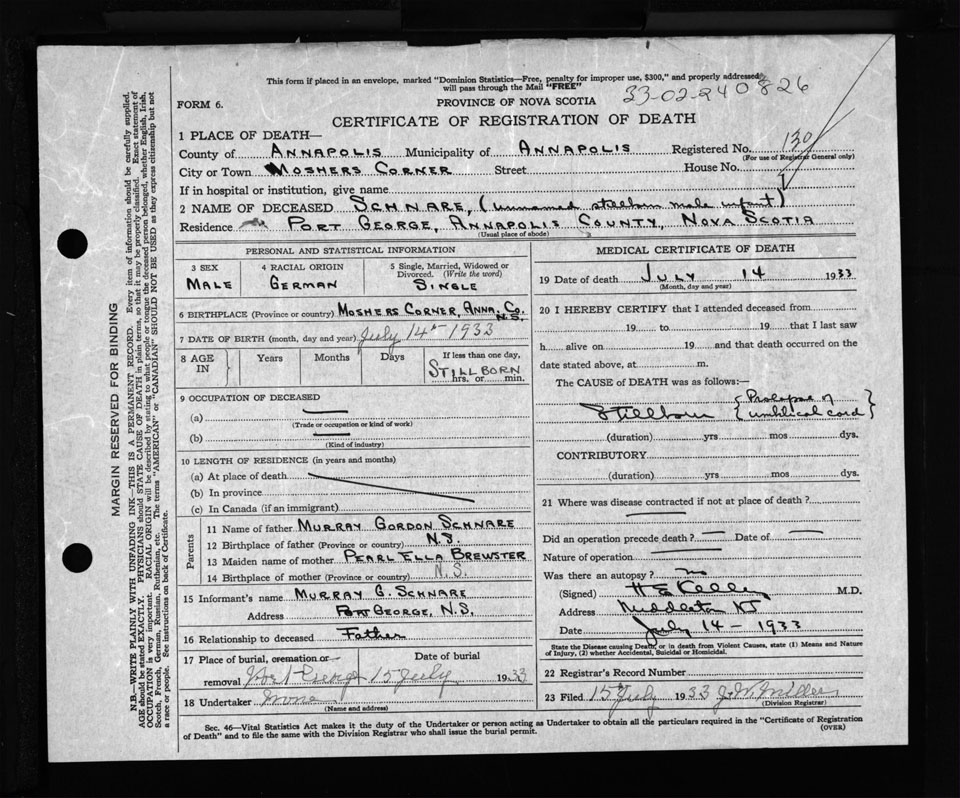 This form if placed in an envelope, marked "Dominion Statistics—Free, penalty for improper use, $300," and properly addressed
will pass through the Mail "FREE"
33-02-240826
FORM 6.
PROVINCE OF NOVA SCOTIA
CERTIFICATE OF REGISTRATION OF DEATH
1 PLACE OF DEATH—
County of ANNAPOLIS Municipality of ANNAPOLIS Registered No. 130
(For use of Registrar General only)
City or Town MOSHERS CORNER Street House No.
If in hospital or institution, give name
2 NAME OF DECEASED SCHNARE, (unnamed stillborn male infant)
Residence PORT GEORGE, ANNAPOLIS COUNTY, NOVA SCOTIA
(Usual place of abode)
PERSONAL AND STATISTICAL INFORMATION
3 SEX 4 RACIAL ORIGIN 5 Single, Married, Widowed or
Divorced. (Write the word)
MALE GERMAN SINGLE
6 BIRTHPLACE (Province or country) MOSHERS CORNER, ANNA. CO.
N.S.
7 DATE OF BIRTH (month, day and year) July 14th 1933
8 AGE IN Years Months Days If less than one day,
STILLBORN
hrs. or min.
9 OCCUPATION OF DECEASED
(a)
(Trade or occupation or kind of work)
(b)
(Kind of industry)
10 LENGTH OF RESIDENCE (in years and months)
(a) At place of death
(b) In province
(c) In Canada (if an immigrant)
Parents
11 Name of father MURRAY GORDON SCHNARE
12 Birthplace of father (Province or country) N.S.
13 Maiden name of mother PEARL ELLA BREWSTER
14 Birthplace of mother (Province or country) N.S.
15 Informant's name MURRAY G. SCHNARE
Address PORT GEORGE, N.S.
16 Relationship to deceased Father
17 Place of burial, cremation or Date of burial
removal Port George 15 July 1933
18 Undertaker None
(Name and address)
MEDICAL CERTIFICATE OF DEATH
19 Date of death JULY 14 1933
(Month, day and year)
20 I HEREBY CERTIFY that I attended deceased from
19 to 19 that I last saw
h alive on 19 and that death occurred on the
date stated above, at m.
The CAUSE of DEATH was as follows:—
Stillborn {Prolapse of
umbilical cord}
(duration) yrs mos dys.
CONTRIBUTORY
(duration) yrs mos dys.
21 Where was disease contracted if not at place of death?
Did an operation precede death? Date of
Nature of operation
Was there an autopsy? no
(Signed) H E Kelley M.D.
Address Middleton NS
Date July 14 - 1933
State the Disease causing Death, or in death from Violent Causes, state (1) Means and Nature
of Injury, (2) whether Accidental, Suicidal or Homicidal.
22 Registrar's Record Number
23 Filed 15 July 1933 J.W. Miller
(Division Registrar)
Sec. 46—Vital Statistics Act makes it the duty of the Undertaker or person acting as Undertaker to obtain all the particulars required in the "Certificate of Registration
of Death" and to file the same with the Division Registrar who shall issue the burial permit.
(OVER)
MARGIN RESERVED FOR BINDING
N.B.—WRITE PLAINLY WITH UNFADING INK—THIS IS A PERMANENT RECORD. Every item of information should be carefully supplied.
AGE should be stated EXACTLY. PHYSICIANS should STATE CAUSE OF DEATH in plain terms, so that it may be properly classified. Exact statement of
OCCUPATION is very important. RACIAL ORIGIN will be described by stating to what people or tongue the deceased person belonged, whether English, Irish,
Scotch, French, German, Russian, Ruthenian, etc. The terms "AMERICAN" or "CANADIAN" SHOULD NOT BE USED as they express citizenship but not
a race or people. See instructions on back of Certificate.